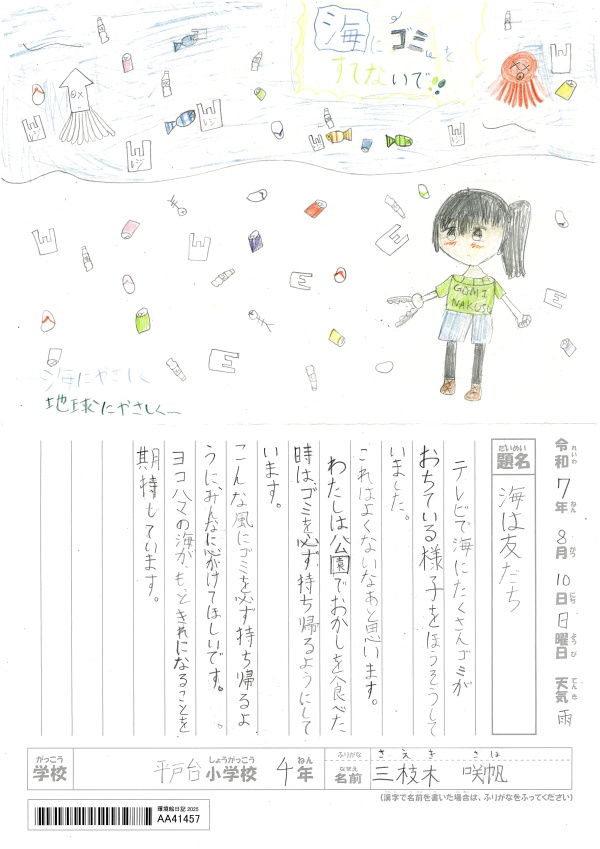 海にゴミを
すてないで!!
レジ
レジ
レジ
レジ
GOMI
NAKUSU
E
E
E
海にやさしく
地球にやさしく
令和7年8月10日日曜日 天気 雨
れいわ ねん がつ にち ようび てんき
だいめい
題名 海は友だち
テレビで海にたくさんゴミが
おちている様子をほうそうして
いました。
これはよくないなあと思います。
わたしは公園でおかしを食べた
時は、ゴミを必ず持ち帰るようにして
います。
こんな風にゴミを必ず持ち帰るよ
うに、みんなに心がけてほしいです。
ヨコハマの海が、もっときれになることを
期待しています。
がっこう しょうがっこう ねん ふりがな さえき さほ
学校 平戸台小学校 4年 なまえ 名前 三枝木 咲帆
(漢字で名前を書いた場合は、ふりがなをふってください)
環境絵日記2025
AA41457